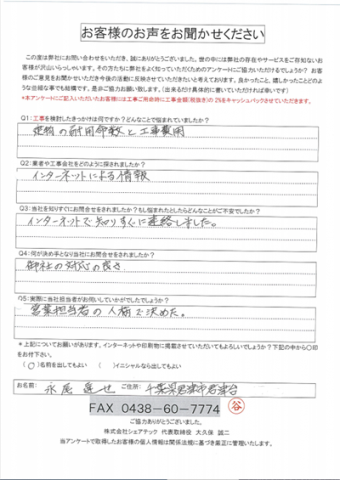 お客様のお声をお聞かせください
この度は弊社にお問い合わせをいただき、誠にありがとうございました。世の中には弊社の存在やサービスをご存知ないお
客様が沢山いらっしゃいます。その方たちに弊社をよく知っていただくためのアンケートにご協力いただけるでしょうか？ お客
様のご意見をお聞かせいただき今後の活動に反映させていただきたいと考えております。良かったこと、嬉しかったことどのよ
うな些細な事でも結構です、是非ご協力お願い致します。（出来るだけ具体的に書いていただければ幸いです）
*本アンケートにご記入いただいたお客様には工事ご用命時に工事金額(税抜き)の 2%をキャッシュバックさせていただきます。
Q1:工事を検討したきっかけは何ですか？どんなことで悩まれていましたか？
建物の耐用命数と工事費用
Q2:業者や工事会社をどのように探されましたか？
インターネットによる情報
Q3:当社を知りすぐにお問合せをされましたか？もし悩まれたとしたらどんなことがご不安でしたか？
インターネットで知りすぐに連絡しました。
Q4:何が決め手となり当社にお問合せをされましたか？
御社の対応の良さ
Q5:実際に当社担当者がお伺いしていかがでしたでしょうか？
営業担当者の人柄で決めた。
* 上記についてお願いがあります。インターネットや印刷物に掲載させていただいてもよろしいでしょうか？下記の中から〇印
をお付下さい。
(〇)名前を出してもよい ( )イニシャルなら出してもよい
お名前: 永尾 ご住所: 千葉県君津市
FAX 0438-60-7774 谷
ご協力ありがとうございました。
株式会社シェアテック 代表取締役 大久保 誠二
当アンケートで取得したお客様の個人情報は関係法規に基づき厳正に管理いたします。